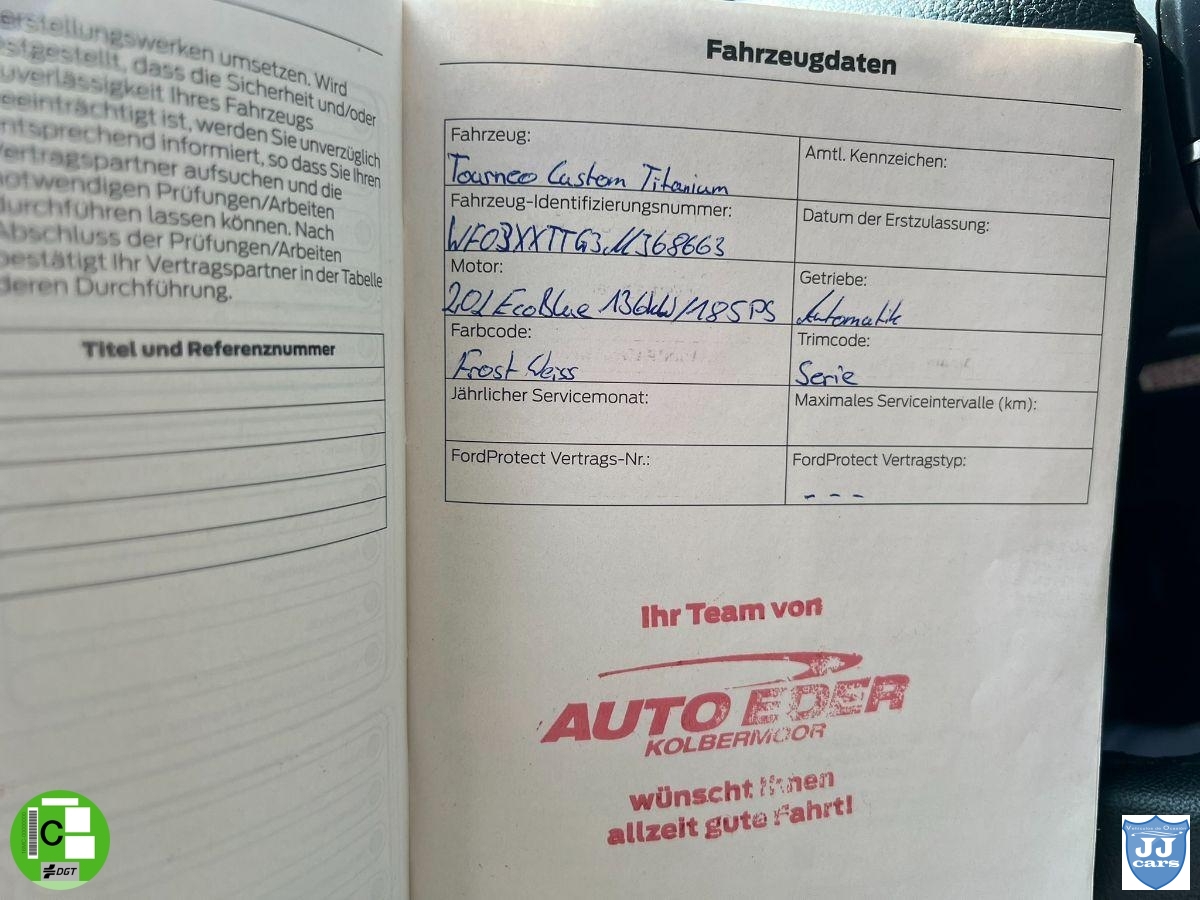 erstellungswerken umsetzen. Wird
estgestellt, dass die Sicherheit und/oder
uverlässigkeit Ihres Fahrzeugs
eeinträchtigt ist, werden Sie unverzüglich
ntsprechend informiert, so dass Sie Ihren
ertragspartner aufsuchen und die
notwendigen Prüfungen/Arbeiten
durchführen lassen können. Nach
Abschluss der Prüfungen/Arbeiten
bestätigt Ihr Vertragspartner in der Tabelle
deren Durchführung.
Titel und Referenznummer
Fahrzeugdaten
Fahrzeug:
Tourneo Custom Titanium
Amtl. Kennzeichen:
Fahrzeug-Identifizierungsnummer:
WF03XXTTG3MJ68663
Datum der Erstzulassung:
Motor:
2.0L EcoBlue 136kW/185PS
Getriebe:
Automatik
Farbcode:
Frost Weiss
Trimcode:
Serie
Jährlicher Servicemonat:
Maximales Serviceintervalle (km):
FordProtect Vertrags-Nr.:
FordProtect Vertragstyp:
- - -
Ihr Team von
AUTO EDER
KOLBERMOOR
wünscht Ihnen
allzeit gute Fahrt!
C
DGT
Vehículos de Ocasión
JJ
cars